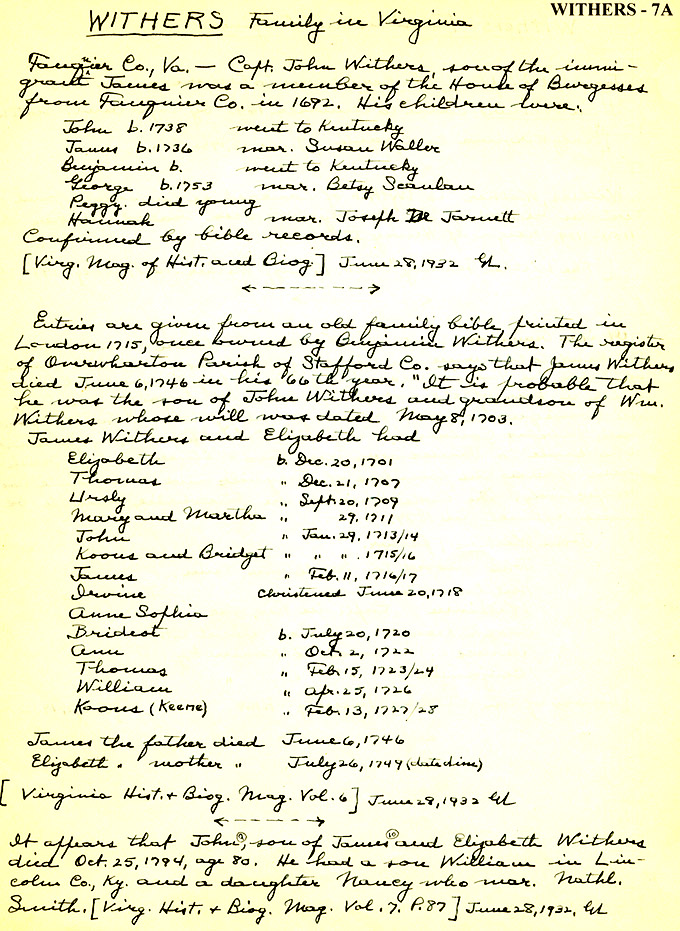 WITHERS - 7A
WITHERS Family in Virginia
Fauquier Co., Va. — Capt. John Withers, son of the immi-
grant James was a member of the House of Burgesses
from Fauquier Co. in 1692. His children were:
John b. 1738 went to Kentucky
James b. 1736 mar. Susan Waller
Benjamin b. went to Kentucky
George b. 1753 mar. Betsy Scanlan
Peggy. died young
Hannah mar. Joseph De Jarnett
Confirmed by bible records.
[Virg. Mag. of Hist. and Biog.] June 28, 1932 GL.
Entries are given from an old family bible, printed in
London 1715, once owned by Benjamin Withers. The register
of Overwharton Parish of Stafford Co. says that James Withers
died June 6, 1746 in his "66th year." It is probable that
he was the son of John Withers and grandson of Wm.
Withers whose will was dated May 8, 1703.
James Withers and Elizabeth had
Elizabeth b. Dec. 20, 1701
Thomas " Dec. 21, 1707
Ursly " Sept. 20, 1709
Mary and Martha " 29, 1711
John " Jan. 29, 1713/14
Koons and Bridget " " " . 1715/16
James " Feb. 11, 1716/17
Irvine christened June 20, 1718
Anne Sophia
Bridest b. July 20, 1720
Ann " Oct. 2, 1722
Thomas " Feb. 15, 1723/24
William " Apr. 25, 1726
Koons (Keene) " Feb. 13, 1727/28
James the father died June 6, 1746
Elizabeth " mother " July 26, 1749
[Virginia Hist. + Biog. Mag. Vol. 6] June 28, 1932 GL
It appears that John, son of James and Elizabeth Withers
died Oct. 25, 1794, age 80. He had a son William in Lin-
coln Co., Ky. and a daughter Nancy who mar. Nathl.
Smith. [Virg. Hist. + Biog. Mag. Vol. 7. P. 87] June 28, 1932. GL